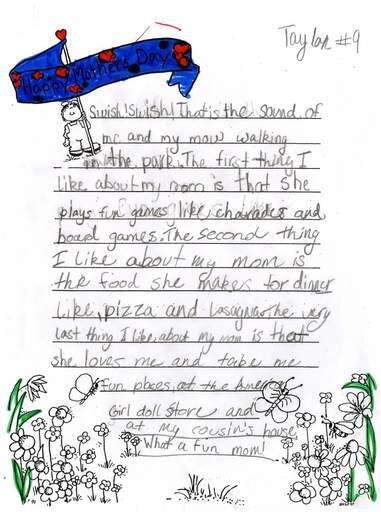 Taylor #9
Happy Mothers Day
Swish! Swish! That is the sound of
me and my mom walking
in the park. The first thing I
like about my mom is that she
plays fun games like, charades and
board games. The second thing
I like about my mom is
the food she makes for dinner
like, pizza and Lasagna. The very
last thing I like, about my mom is that
she loves me and take me
Fun places, at the
Girl doll Store and
at my cousin's house,
What a fun mom!